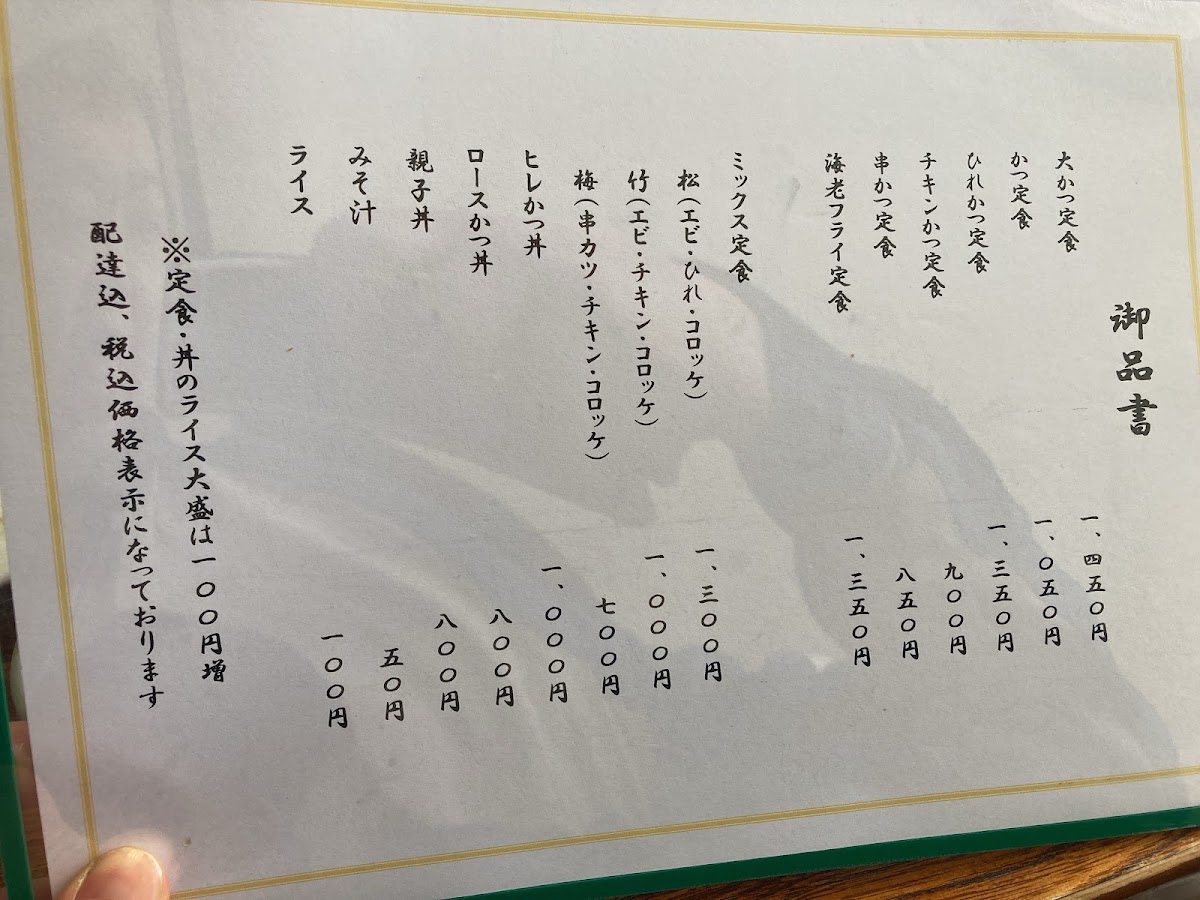 御品書
大かつ定食 一、四五〇円
かつ定食 一、〇五〇円
ひれかつ定食 一、三五〇円
チキンかつ定食 九〇〇円
串かつ定食 八五〇円
海老フライ定食 一、三五〇円
ミックス定食
松(エビ・ひれ・コロッケ) 一、三〇〇円
竹(エビ・チキン・コロッケ) 一、〇〇〇円
梅(串カツ・チキン・コロッケ) 七〇〇円
ヒレかつ丼 一、〇〇〇円
ロースかつ丼 八〇〇円
親子丼 八〇〇円
みそ汁 五〇円
ライス 一〇〇円
※定食・丼のライス大盛は一〇〇円増
配達込、税込価格表示になっております